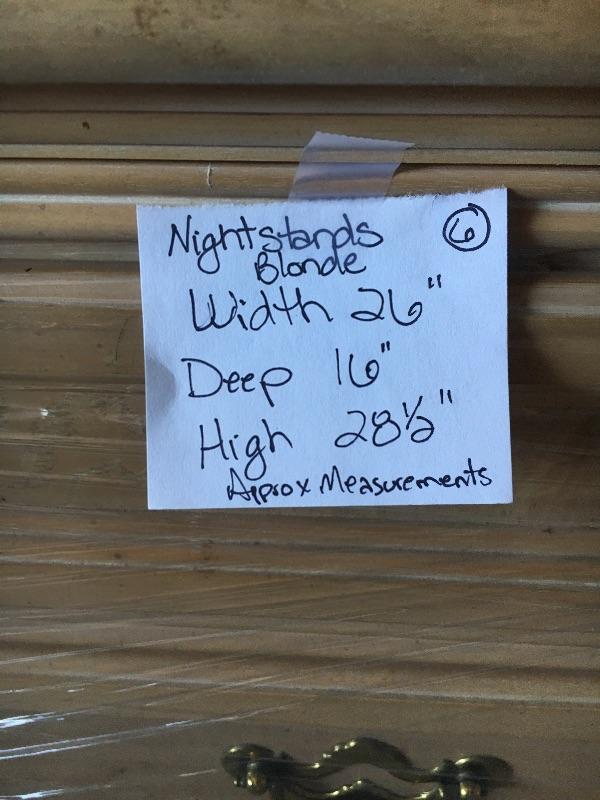 Nightstands 6
Blonde
Width 26"
Deep 16"
High 28½"
Approx Measurements